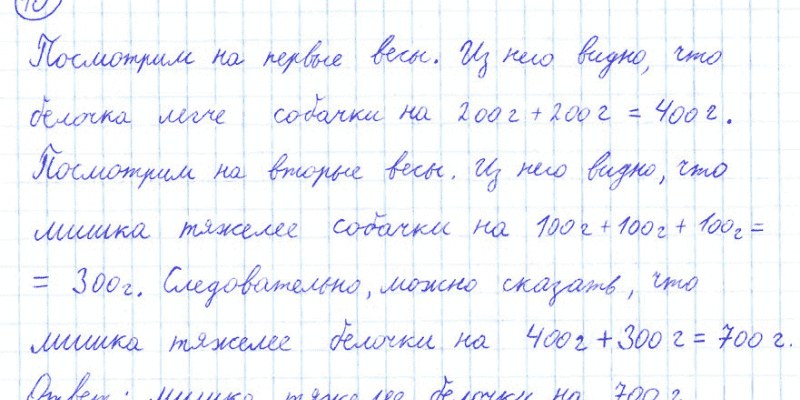 10
Посмотрим на первые весы. Из него видно, что
белочка легче собачки на 200г + 200г = 400г.
Посмотрим на вторые весы. Из него видно, что
мишка тяжелее собачки на 100г + 100г + 100г =
= 300г. Следовательно, можно сказать, что
мишка тяжелее белочки на 400г + 300г = 700г.
Ответ: мишка тяжелее белочки на 700г